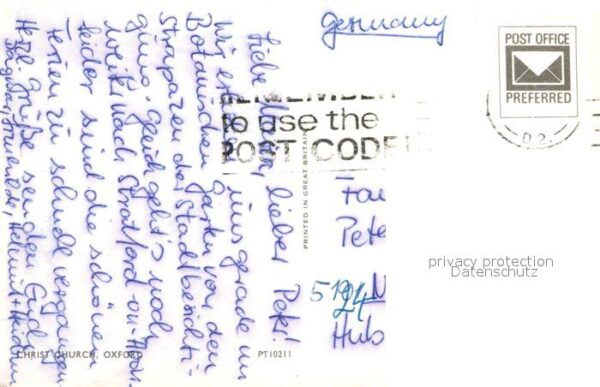 Germany
POST OFFICE
PREFERRED
REMEMBER
to use the
POST CODE
Liebe lieber Peter!
Wir erholen uns gerade im
Botanischen Garten von den
Strapazen der Stadtbesichti-
gung. Gleich geht's noch
weiter nach Stratford-on-Avon.
Leider sind die schönen
Ferien zu schnell vergangen.
Herzl. Grüße senden Euch
Helmut + Heidrun
PRINTED IN GREAT BRITAIN
Fa
Pete
5124 N
Hub
privacy protection
Datenschutz
CHRIST CHURCH, OXFORD
PT10211